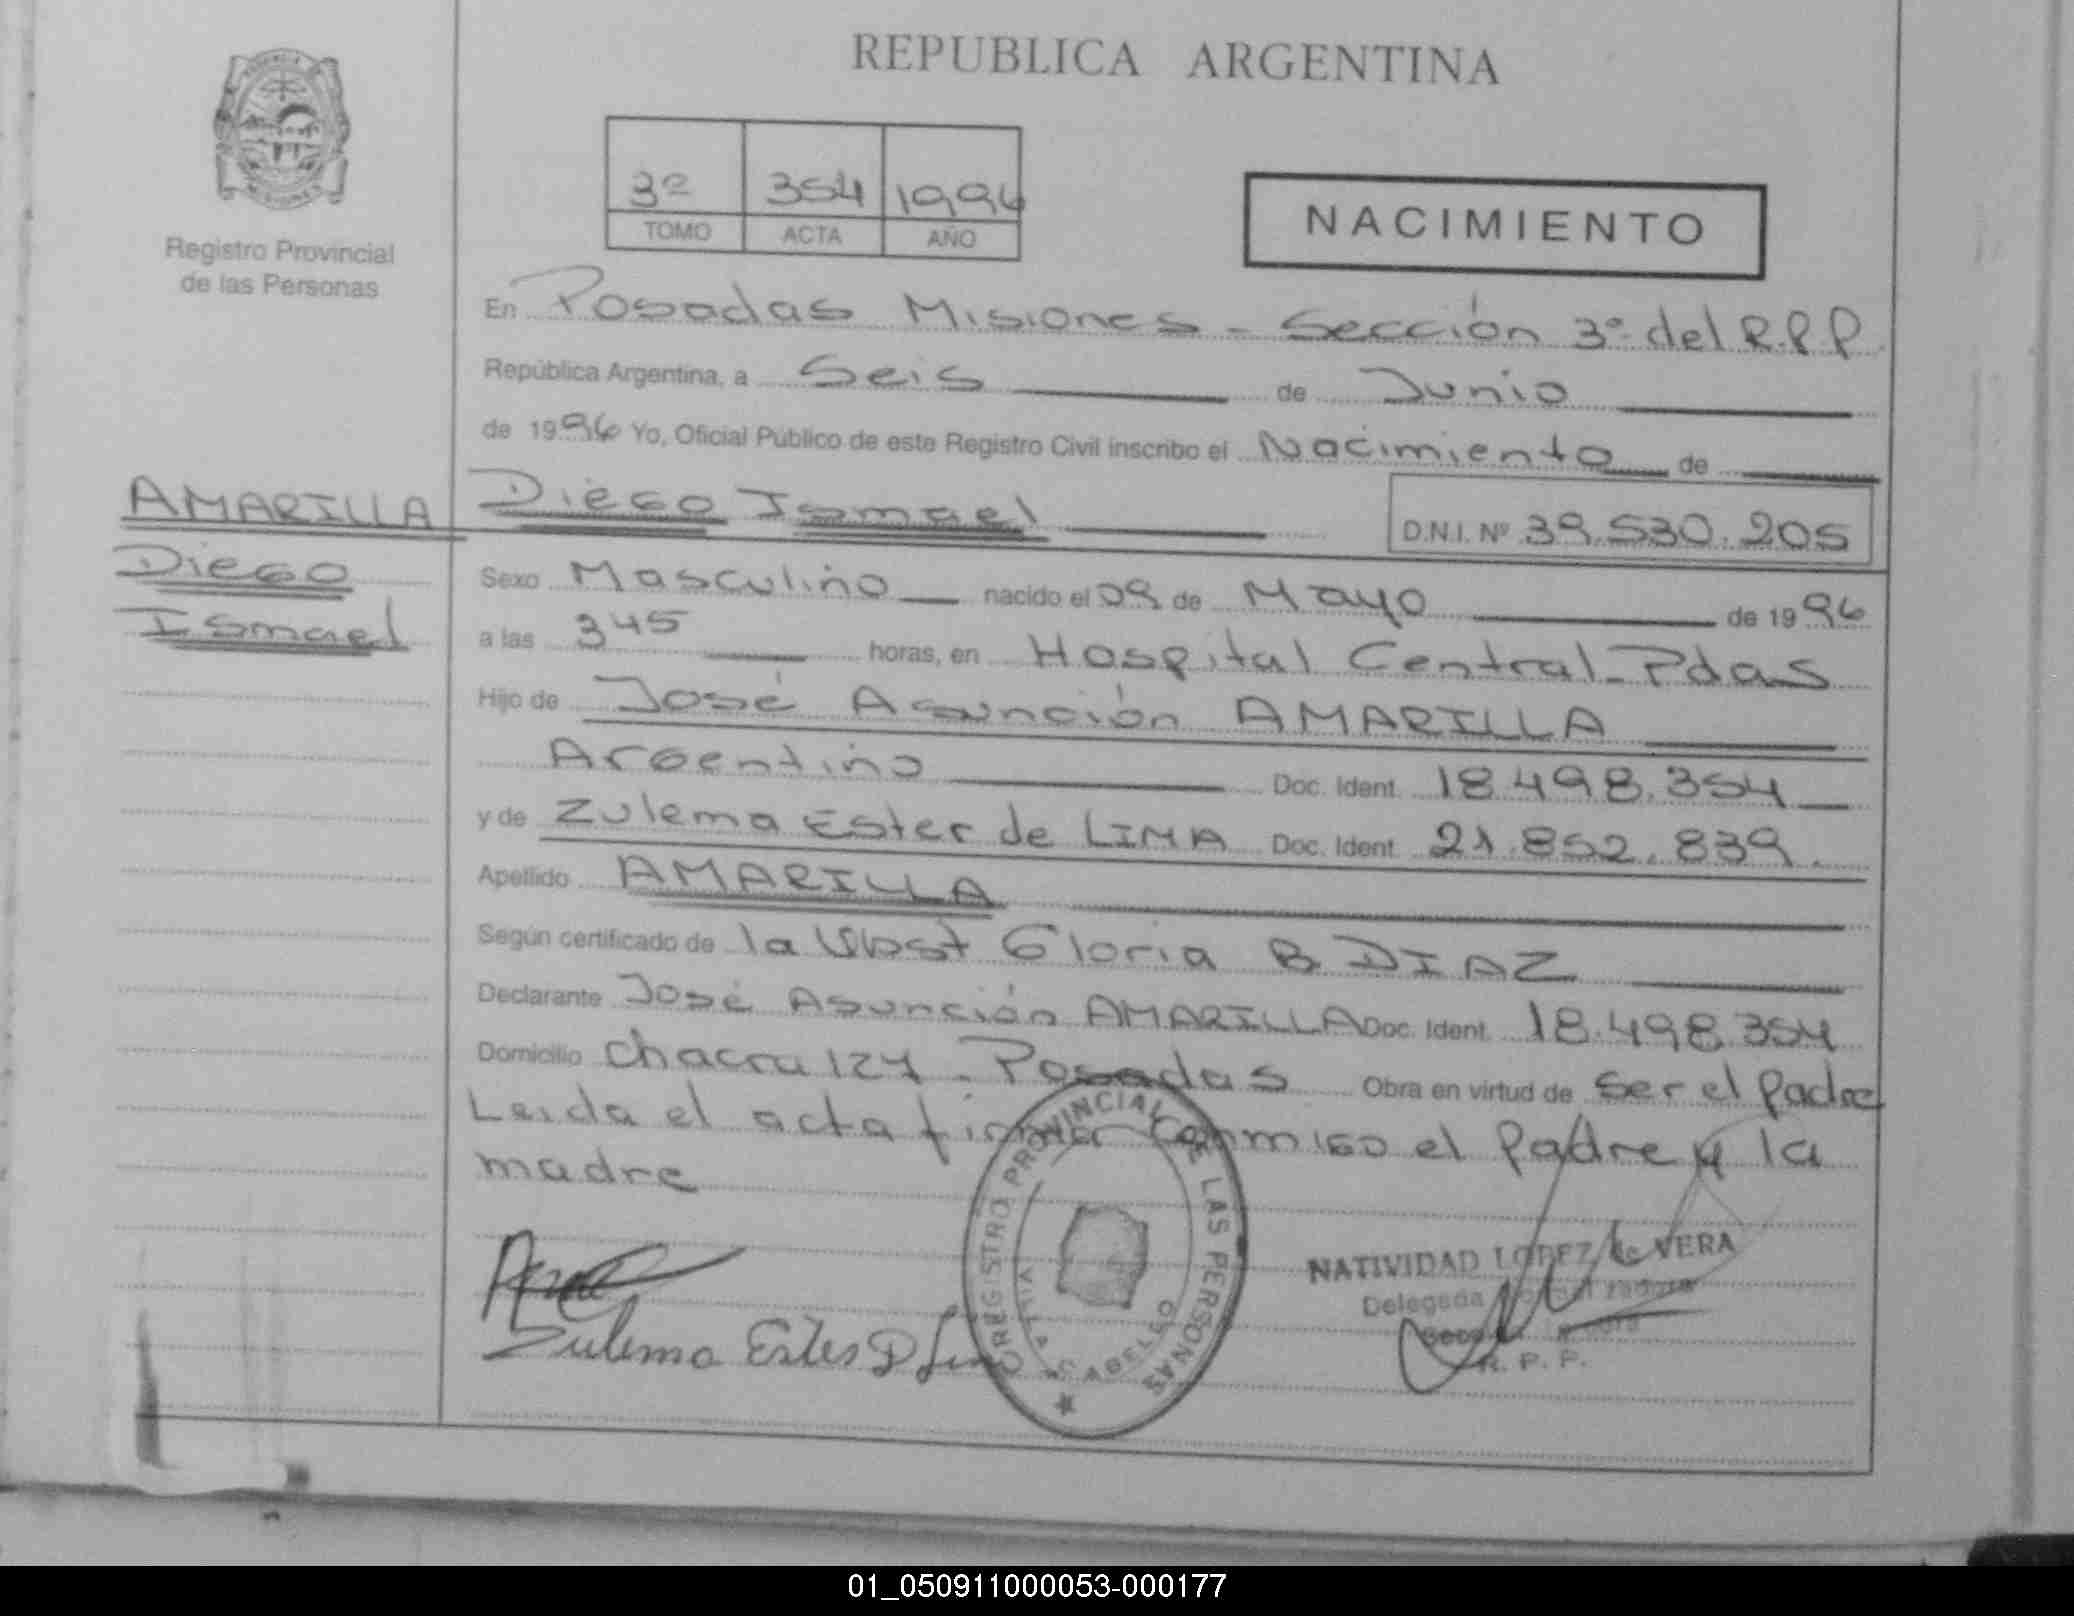 REPUBLICA ARGENTINA
Registro Provincial
de las Personas
3º 354 1996
TOMO ACTA AÑO
NACIMIENTO
En Posadas Misiones - Sección 3º del R.P.P
República Argentina, a Seis de Junio
de 1996 Yo, Oficial Público de este Registro Civil inscribo el Nacimiento de
AMARILLA
Diego
Ismael
Diego Ismael D.N.I. Nº 39.530.205
Sexo Masculino nacido el 09 de Mayo de 1996
a las 345 horas, en Hospital Central - Pdas
Hijo de José Asunción AMARILLA
Argentino Doc. Ident. 18.498.354
y de Zulema Ester de LIMA Doc. Ident. 21.852.839.
Apellido AMARILLA
Según certificado de la Obst Gloria B DIAZ
Declarante José Asunción AMARILLA Doc. Ident. 18.498.354
Domicilio Chacra 127 - Posadas Obra en virtud de Ser el Padre
Leida el acta firman conmigo el Padre y la
madre
Zulema Ester D
REGISTRO PROVINCIAL DE LAS PERSONAS
NATIVIDAD LOPEZ de VERA
Delegada
R. P. P.
01_050911000053-000177